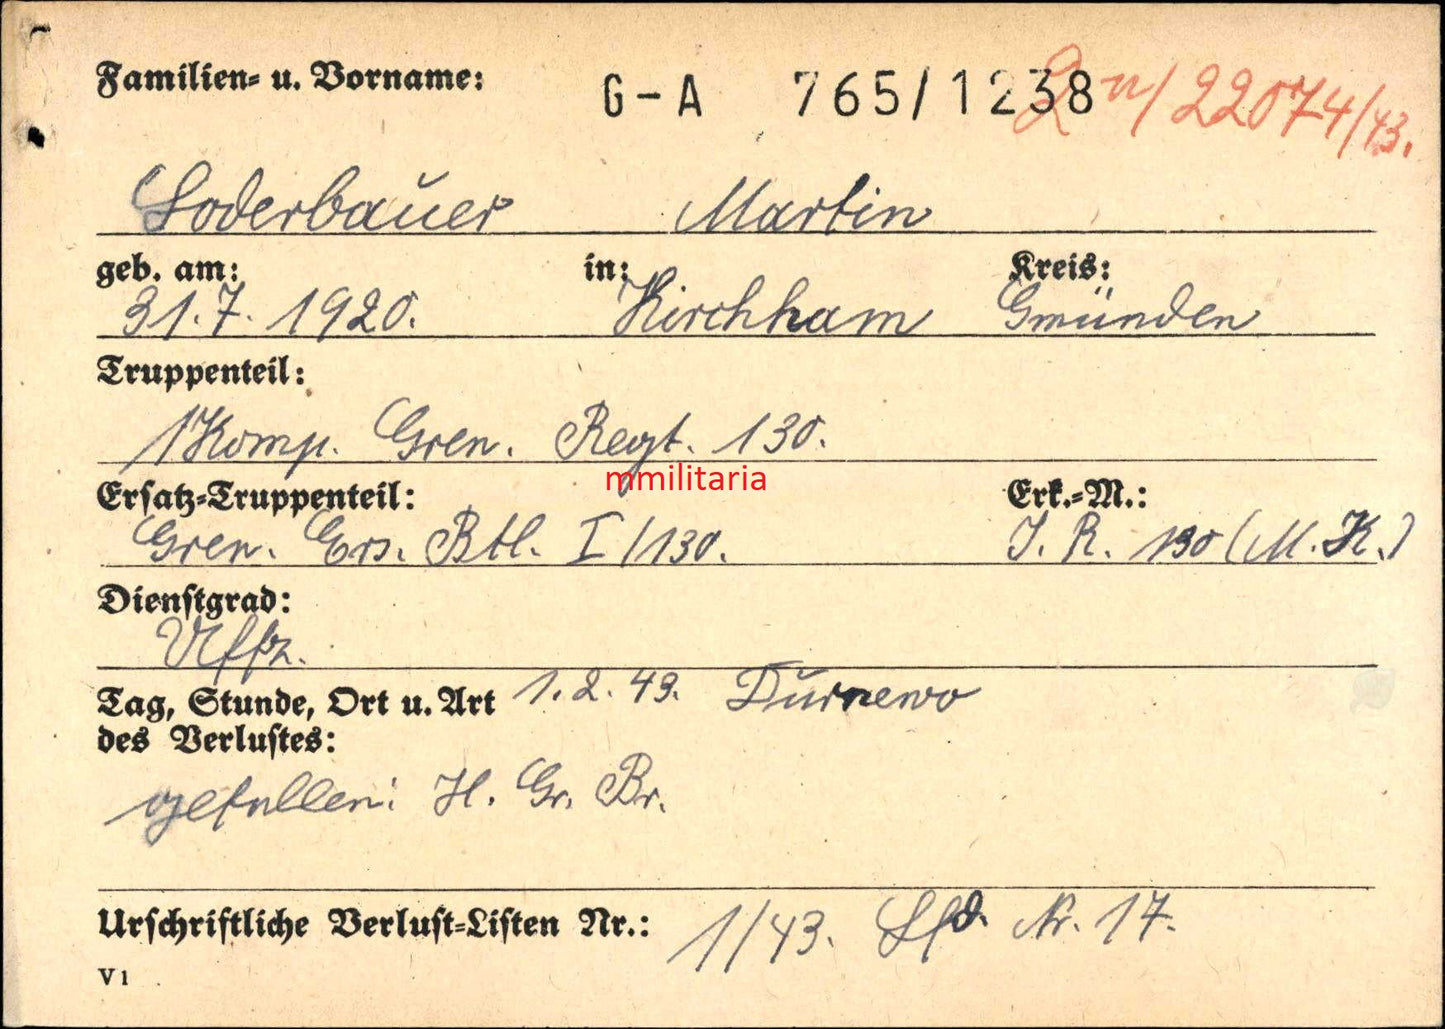 Familien- u. Vorname: G-A 765/1238 2 n/22074/43.
Loderbauer Martin
geb. am: in: Kreis:
31.7.1920. Kirchham Gmünden
Truppenteil:
1 Komp. Gren. Regt. 130.
mmilitaria
Ersatz-Truppenteil: Erk.-M.:
Gren. Ers. Btl. I/130. J. R. 130 (M. K.)
Dienstgrad:
Uffz.
Tag, Stunde, Ort u. Art 1.2.43. Durnewo
des Verlustes:
gefallen: H. Gr. Br.
Urschriftliche Verlust-Listen Nr.: 1/43. Lfd. Nr. 17.
V 1